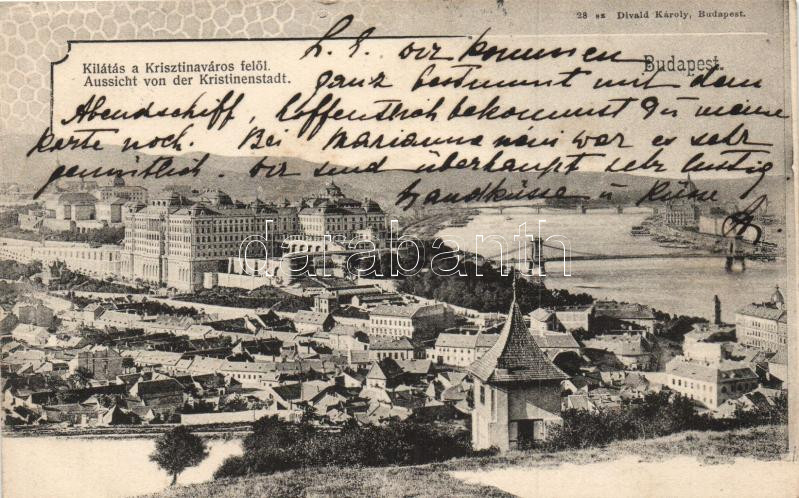 28 sz Divald Károly, Budapest.
Kilátás a Krisztinaváros felől.
Aussicht von der Kristinenstadt.
Budapest.
L. E. wir kommen
ganz bestimmt mit dem
Abendschiff, hoffentlich bekommst Du meine
Karte noch. Bei Mariannenéni war es sehr
gemütlich. wir sind überhaupt sehr lustig
Handküsse u Küsse
darabanth